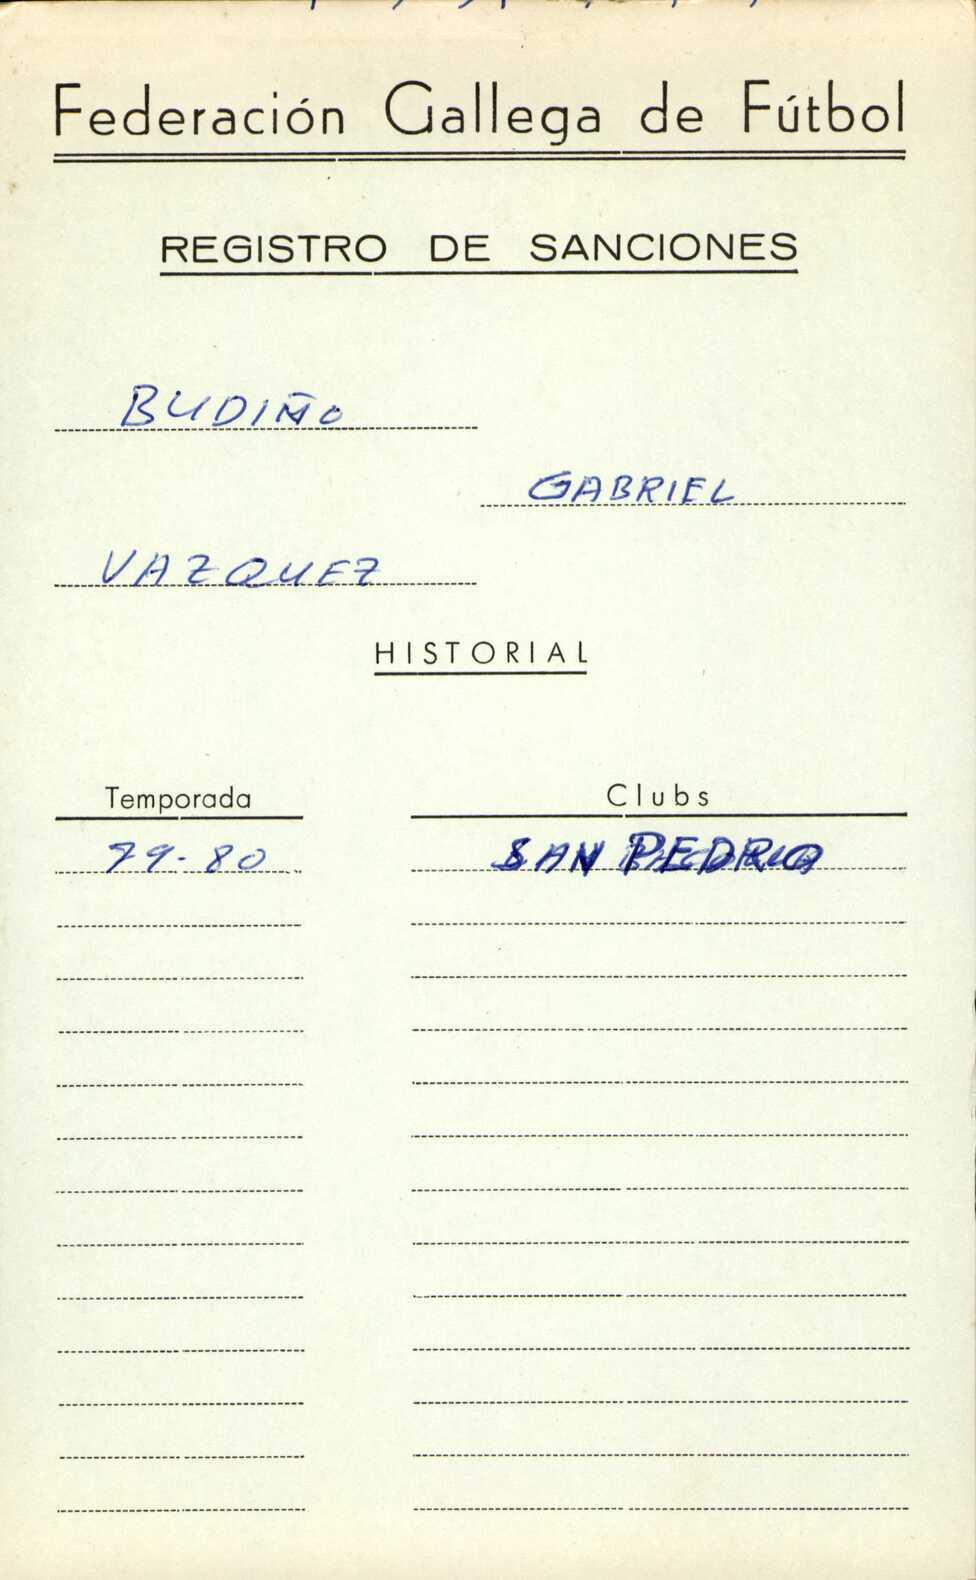 Federación Gallega de Fútbol
REGISTRO DE SANCIONES
BUDIÑO
GABRIEL
VAZQUEZ
HISTORIAL
Temporada Clubs
79-80 SAN PEDRO